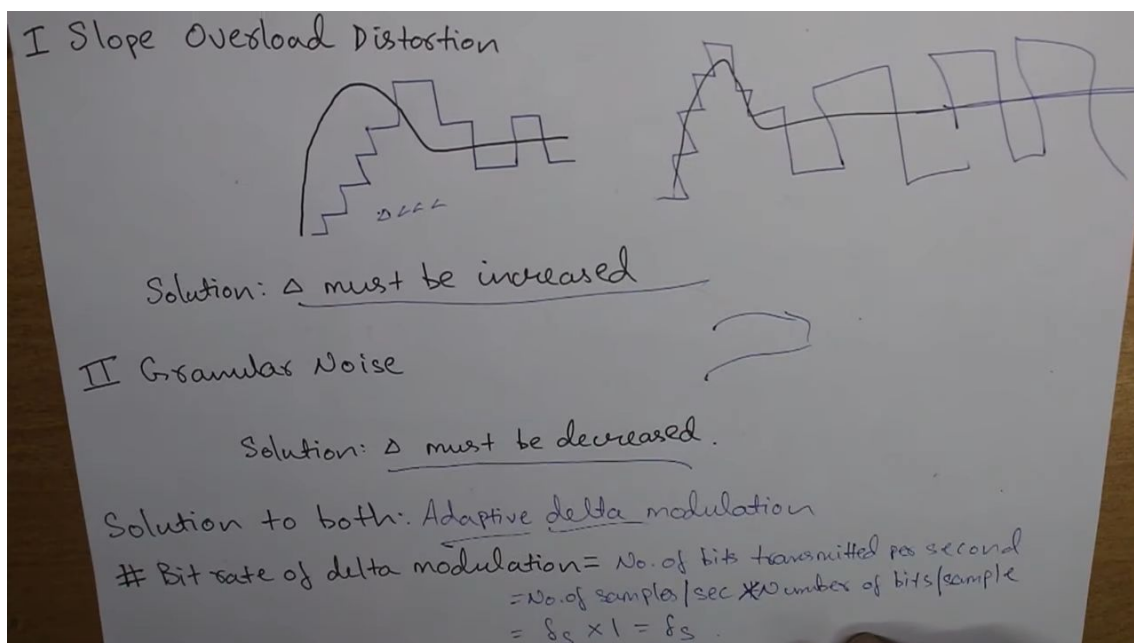 I Slope Overload Distortion
Solution: Δ must be increased
II Granular Noise
Solution: Δ must be decreased.
Solution to both: Adaptive delta modulation
# Bit rate of delta modulation = No. of bits transmitted per second
= No. of samples/sec * Number of bits/sample
= fs × 1 = fs.